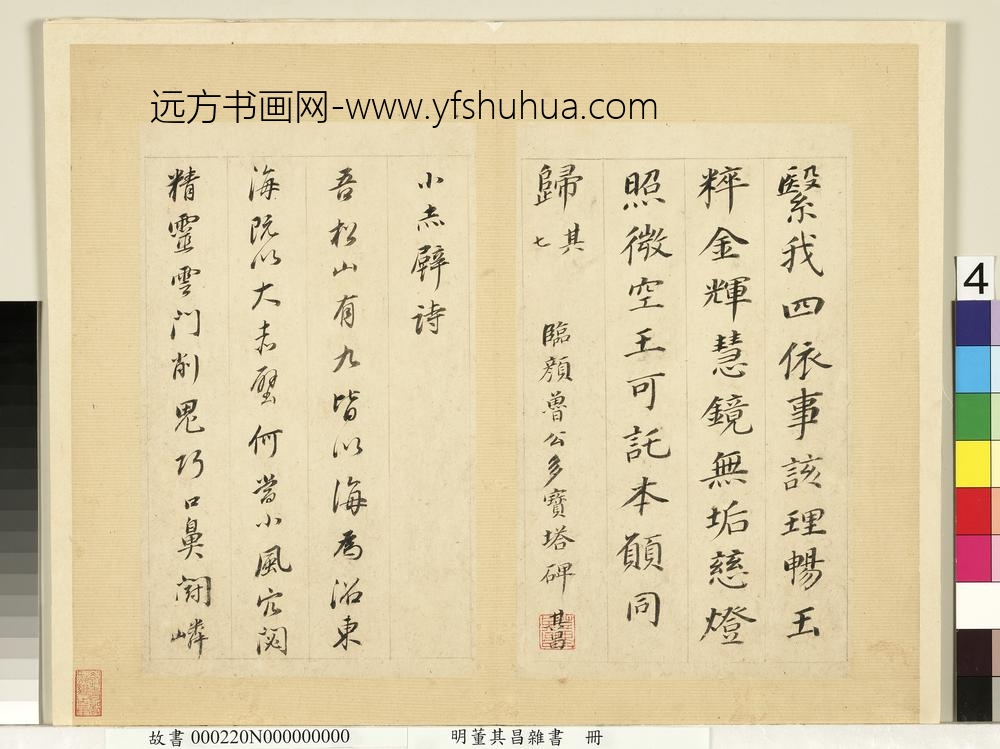 远方书画网-www.yfshuhua.com
繄我四依事該理暢玉
粹金輝慧鏡無垢慈燈
照微空王可託本願同
歸其七
臨顏魯公多寶塔碑 其昌
小赤壁诗
吾松山有九皆以海為浴東
海既以大赤壁何嘗小風穴閟
精靈雲門削鬼巧口鼻閜嶙
4
故書 000220N000000000
明董其昌雜書 冊